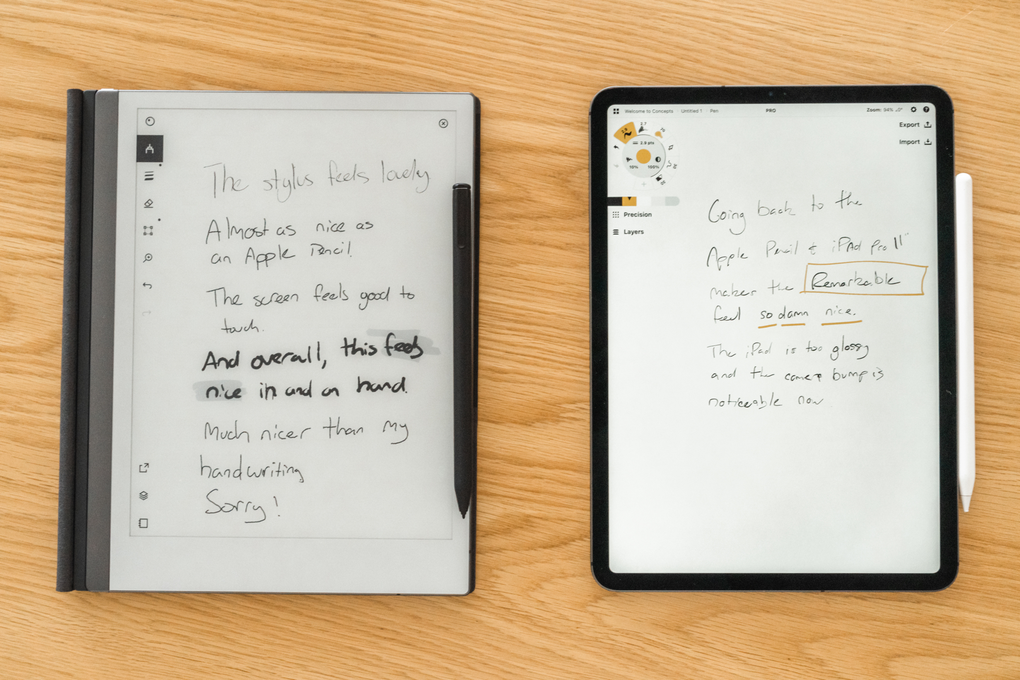 The stylus feels lovely
Almost as nice as
an Apple Pencil.
The screen feels good to
touch.
And overall, this feels
nice in and on hand.
Much nicer than my
handwriting
Sorry!
Welcome to Concepts Untitled 1 Pen PRO Zoom: 94%
Export
Import
2.9 pts
10% 100%
Precision
Layers
Going back to the
Apple Pencil & iPad Pro 11"
makes the Remarkable
feel so damn nice.
The iPad is too glossy
and the camera bump is
noticeable now